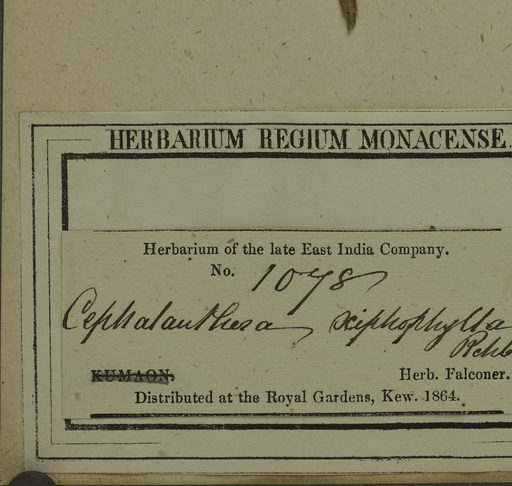 HERBARIUM REGIUM MONACENSE.
Herbarium of the late East India Company.
No. 1078
Cephalanthera xiphophylla
Rchb
KUMAON.
Herb. Falconer.
Distributed at the Royal Gardens, Kew. 1864.